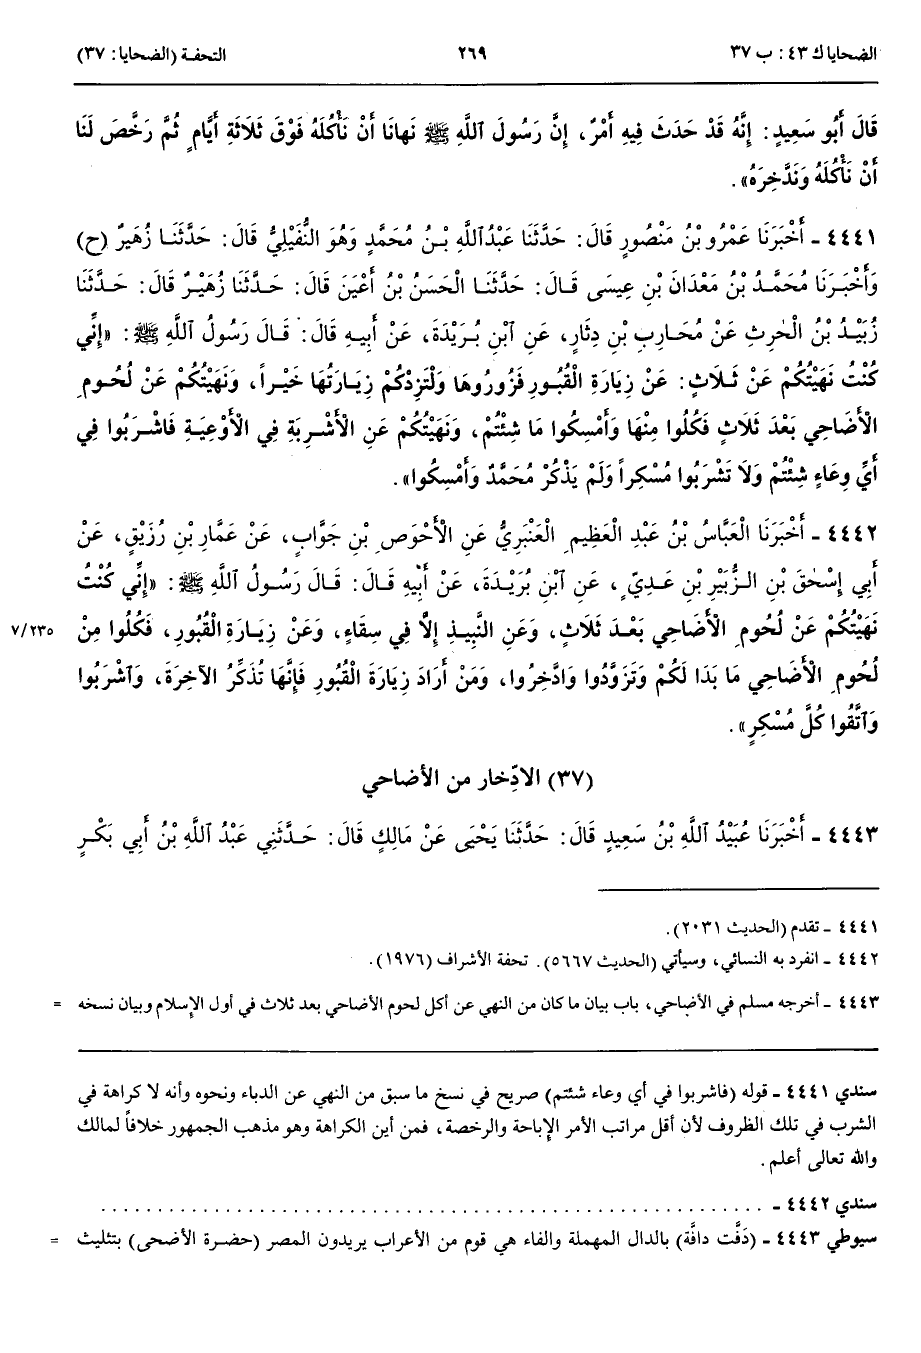 الضحايا ك ٤٣: ب ٣٧
٢٦٩
التحفة (الضحايا: ٣٧)
قَالَ أَبُو سَعِيدٍ: إِنَّهُ قَدْ حَدَثَ فِيهِ أَمْرٌ، إِنَّ رَسُولَ ٱللَّهِ ﷺ نَهانَا أَنْ نَأْكُلَهُ فَوْقَ ثَلَاثَةِ أَيَّامٍ ثُمَّ رَخَّصَ لَنَا
أَنْ نَأْكُلَهُ وَنَدَّخِرَهُ».
٤٤٤١ ـ أَخْبَرَنَا عَمْرُو بْنُ مَنْصُورٍ قَالَ: حَدَّثَنَا عَبْدُاللَّهِ بْنُ مُحَمَّدٍ وَهُوَ النُّفَيْلِيُّ قَالَ: حَدَّثَنَا زُهَيرٌ (ح)
وَأَخْبَرَنَا مُحَمَّدُ بْنُ مَعْدَانَ بْنِ عِيسَى قَالَ: حَدَّثَنَا الْحَسَنُ بْنُ أَعْيَنَ قَالَ: حَدَّثَنَا زُهَيْرٌ قَالَ: حَدَّثَنَا
زُبَيْدُ بْنُ الْحٰرِثِ عَنْ مُحَارِبِ بْنِ دِثَارٍ، عَنِ ٱبْنِ بُرَيْدَةَ، عَنْ أَبِيهِ قَالَ: قَالَ رَسُولُ ٱللَّهِ ﷺ: «إِنِّي
كُنْتُ نَهَيْتُكُمْ عَنْ ثَلَاثٍ: عَنْ زِيَارَةِ الْقُبُورِ فَزُورُوهَا وَلْتَزِدْكُمْ زِيَارَتُهَا خَيْراً، وَنَهَيْتُكُمْ عَنْ لُحُومِ
الْأَضَاحِي بَعْدَ ثَلَاثٍ فَكُلُوا مِنْهَا وَأَمْسِكُوا مَا شِئْتُمْ، وَنَهَيْتُكُمْ عَنِ الْأَشْرِبَةِ فِي الْأَوْعِيَةِ فَاشْرَبُوا فِي
أَيِّ وِعَاءٍ شِئْتُمْ وَلَا تَشْرَبُوا مُسْكِراً وَلَمْ يَذْكُرْ مُحَمَّدٌ وَأَمْسِكُوا».
٤٤٤٢ ـ أَخْبَرَنَا الْعَبَّاسُ بْنُ عَبْدِ الْعَظِيمِ الْعَنْبَرِيُّ عَنِ الْأَحْوَصِ بْنِ جَوَّابٍ، عَنْ عَمَّارِ بْنِ رُزَيْقٍ، عَنْ
أَبِي إِسْحٰقَ بْنِ الزُّبَيْرِ بْنِ عَدِيٍّ، عَنِ ٱبْنِ بُرَيْدَةَ، عَنْ أَبِيهِ قَالَ: قَالَ رَسُولُ ٱللَّهِ ﷺ: «إِنِّي كُنْتُ
نَهَيْتُكُمْ عَنْ لُحُومِ الْأَضَاحِي بَعْدَ ثَلَاثٍ، وَعَنِ النَّبِيذِ إِلَّا فِي سِقَاءٍ، وَعَنْ زِيَارَةِ الْقُبُورِ، فَكُلُوا مِنْ
٧/٢٣٥
لُحُومِ الْأَضَاحِي مَا بَدَا لَكُمْ وَتَزَوَّدُوا وَادَّخِرُوا، وَمَنْ أَرَادَ زِيَارَةَ الْقُبُورِ فَإِنَّهَا تُذَكِّرُ الآخِرَةَ، وَٱشْرَبُوا
وَٱتَّقُوا كُلَّ مُسْكِرٍ».
(٣٧) الادِّخار من الأضاحي
٤٤٤٣ ـ أَخْبَرَنَا عُبَيْدُ ٱللَّهِ بْنُ سَعِيدٍ قَالَ: حَدَّثَنَا يَحْيَى عَنْ مَالِكٍ قَالَ: حَدَّثَنِي عَبْدُ ٱللَّهِ بْنُ أَبِي بَكْرٍ
٤٤٤١ ـ تقدم (الحديث ٢٠٣١).
٤٤٤٢ ـ انفرد به النسائي، وسيأتي (الحديث ٥٦٦٧). تحفة الأشراف (١٩٧٦).
٤٤٤٣ ـ أخرجه مسلم في الأضاحي، باب بيان ما كان من النهي عن أكل لحوم الأضاحي بعد ثلاث في أول الإسلام وبيان نسخه =
سندي ٤٤٤١ ـ قوله (فاشربوا في أي وعاء شئتم) صريح في نسخ ما سبق من النهي عن الدباء ونحوه وأنه لا كراهة في
الشرب في تلك الظروف لأن أقل مراتب الأمر الإباحة والرخصة، فمن أين الكراهة وهو مذهب الجمهور خلافاً لمالك
والله تعالى أعلم.
سندي ٤٤٤٢ ـ . . . . . . . . . . . . . . . . . . . . . . . . . . . . . . . . . . . . . . . .
سيوطي ٤٤٤٣ ـ (دَفَّت دافَّة) بالدال المهملة والفاء هي قوم من الأعراب يريدون المصر (حضرة الأضحى) بتثليث =